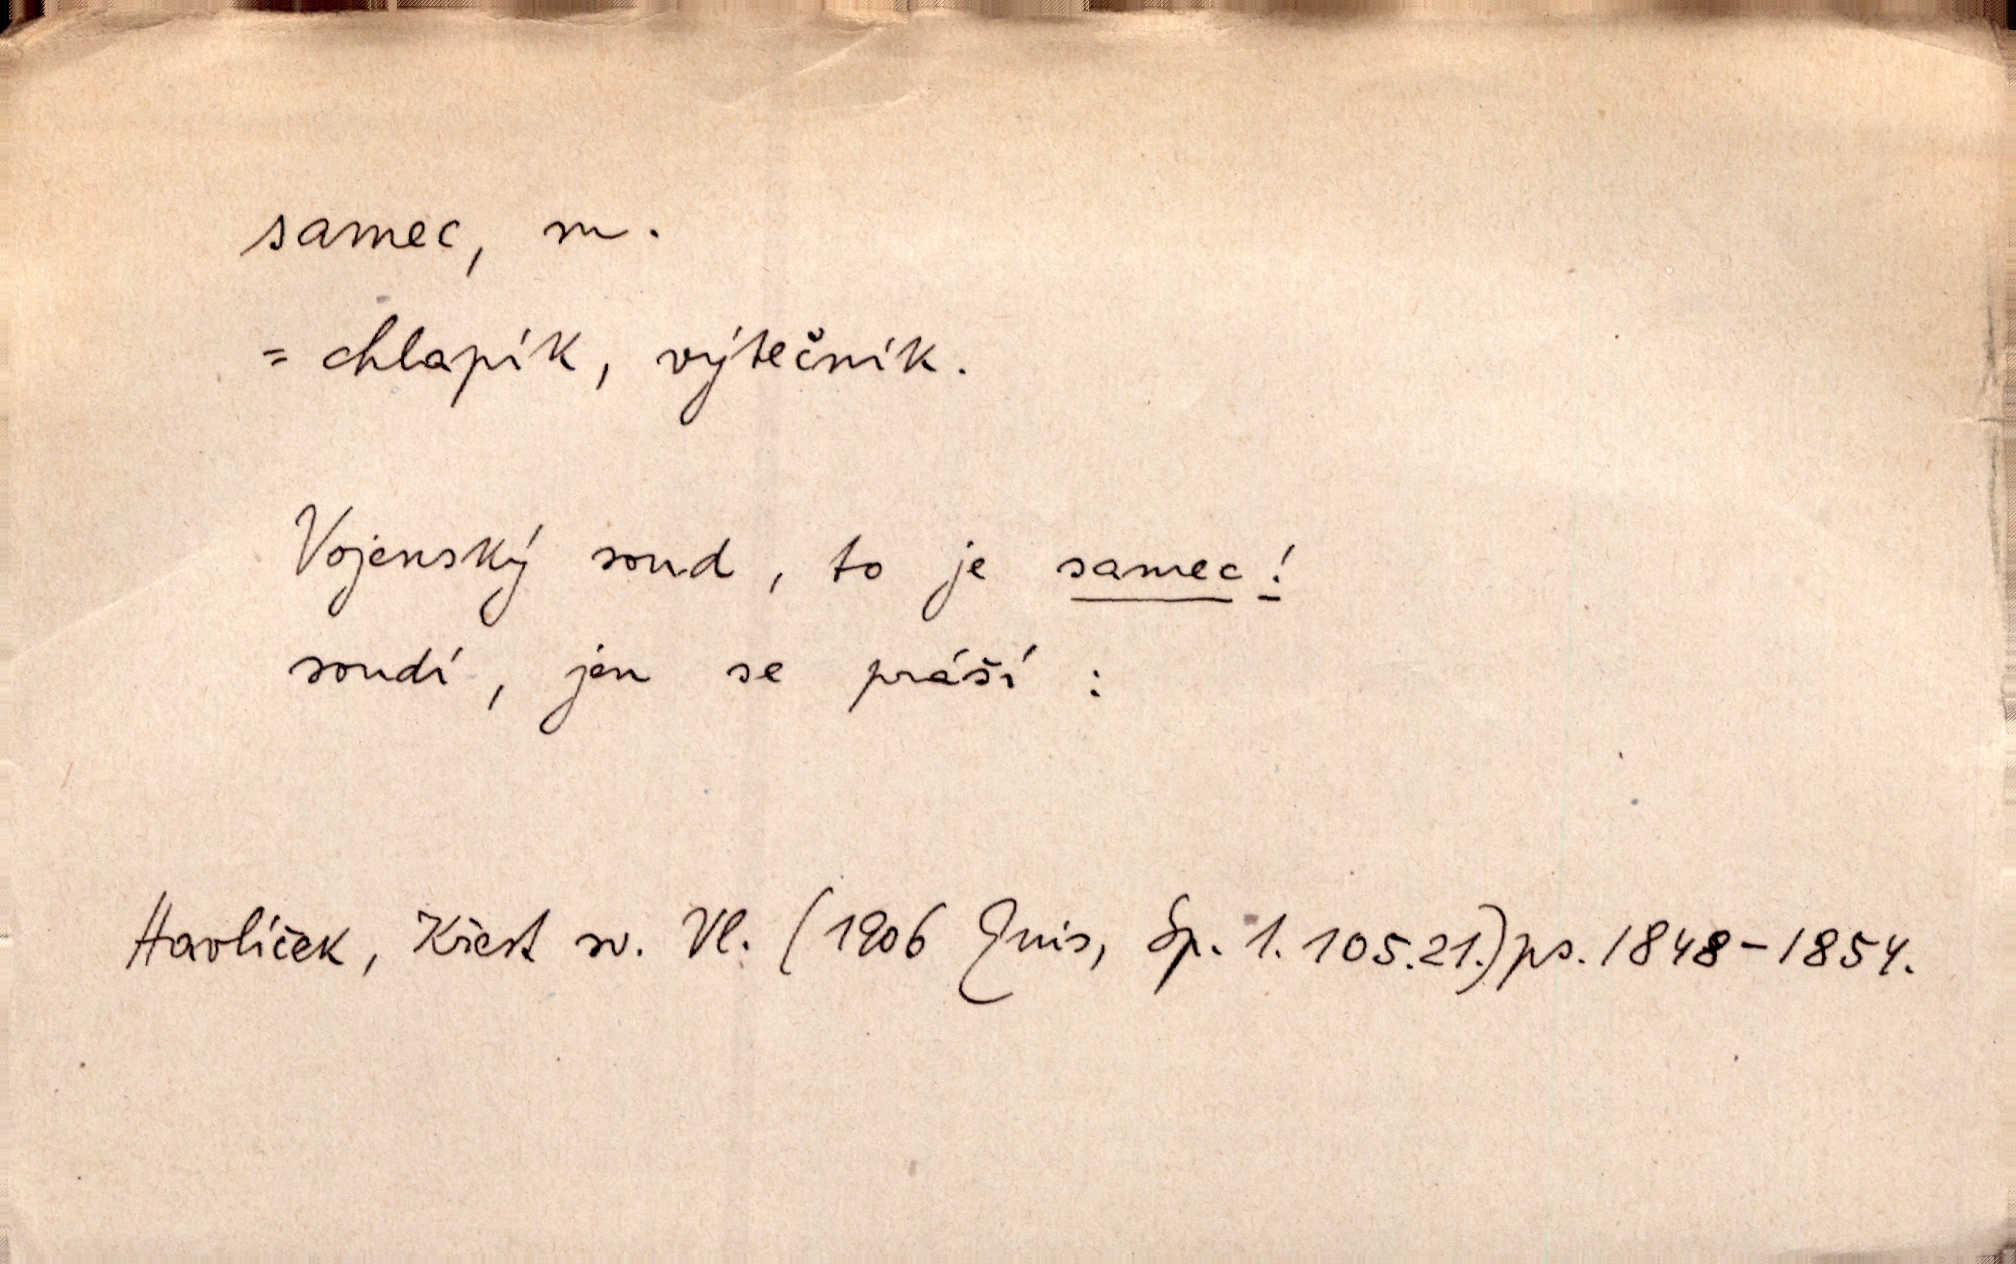 samec, m.
= chlapík, výtečník.
Vojenský soud, to je samec!
soudí, jen se práší:
Havlíček, Křest sv. Vl. (1906 Quis, Sp. 1. 105.21.) ps. 1848-1854.